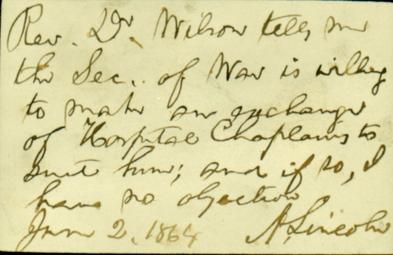 Rev. Dr. Wilson tells me
the Sec. of War is willing
to make an exchange
of Hospital Chaplains to
suit him; and if so, I
have no objection
June 2, 1864 A. Lincoln